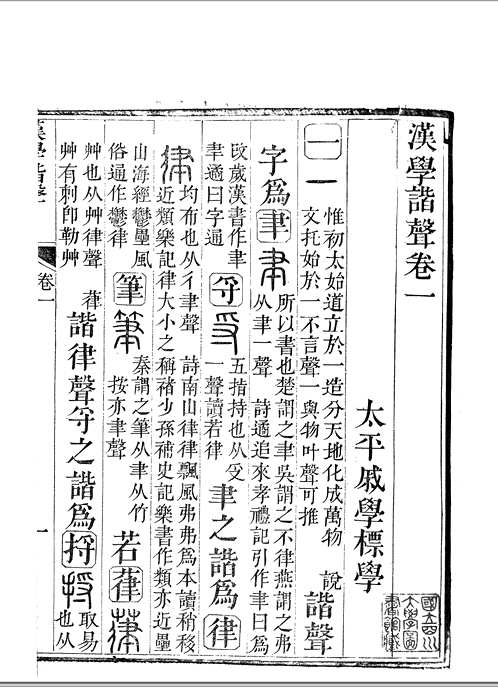 漢學諧聲卷一
太平戚學標學
一 一 惟初太始道立於一造分天地化成萬物 說
文托始於一不言聲一與物叶聲可推
諧聲
字為聿 聿 所以書也楚謂之聿吳謂之不律燕謂之弗
从聿一聲 詩遹追來孝禮記引作聿曰為
改歲漢書作聿
聿遹曰字通
寽 寽 五指持也从𠬪
一聲讀若律
聿之諧為律
律 均布也从彳聿聲 詩南山律律飄風弗弗為本讀稍移
近類樂記律大小之稱褚少孫補史記樂書作類亦近壘
山海經鬱壘風
俗通作鬱律
筆 筆 秦謂之筆从聿从竹
按亦聿聲
若葎 葎
艸也从艸律聲
艸有刺卽勒艸
諧律聲寽之諧為捋 捋 取易
也从
漢學諧聲 卷一 一
國立四川大學圖書館藏